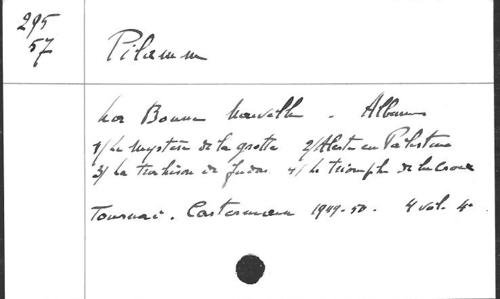 295
57
Pilamm
La Bonne Nouvelle - Albums
1/ Le Mystère de la grotte 2/ Alerte en Palestine
3/ La trahison de Judas 4/ Le triomphe de la Croix
Tournai. Casterman 1949-50. 4 vol. 4°